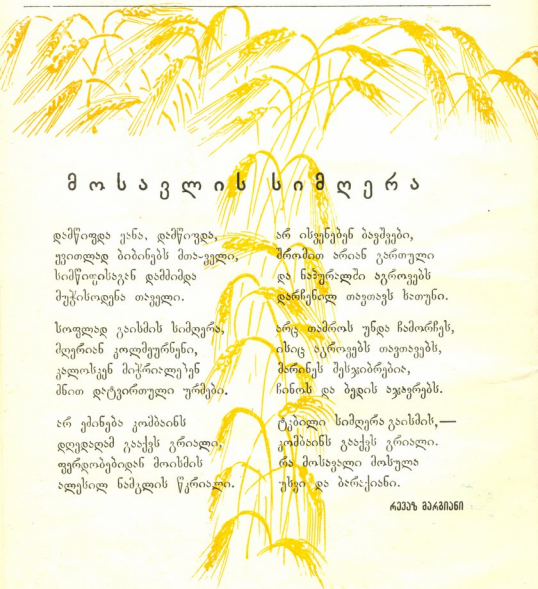 მოსავლის სიმღერა
დამწიფდა ყანა, დამწიფდა,
ყვითლად ბიბინებს მთა-ველი,
სიმწიფისაგან დამძიმდა
მუჭისოდენა თაველი.
სოფლად გაისმის სიმღერა,
მღერიან კოლმეურნენი,
კალოსკენ მიჭრიალებენ
ძნით დატვირთული ურმები.
არ ეძინება კომბაინს
დღედაღამ გააქვს გრიალი,
ფერდობებიდან მოისმის
ალესილ ნამგლის წკრიალი.
არ ისვენებენ ბავშვები,
შრომით არიან გართული
და ნაპურალში აგროვებს
დარჩენილ თავთავს სათუნი.
არც თამროს უნდა ჩამორჩეს,
ისიც აგროვებს თავთავებს,
მარინეს შესჯიბრებია,
ჩინოს და ბედის აჯავრებს.
ტკბილი სიმღერა გაისმის,—
კომბაინს გააქვს გრიალი.
რა მოსავალი მოსულა
უხვი და ბარაქიანი.
რევაზ მარგიანი